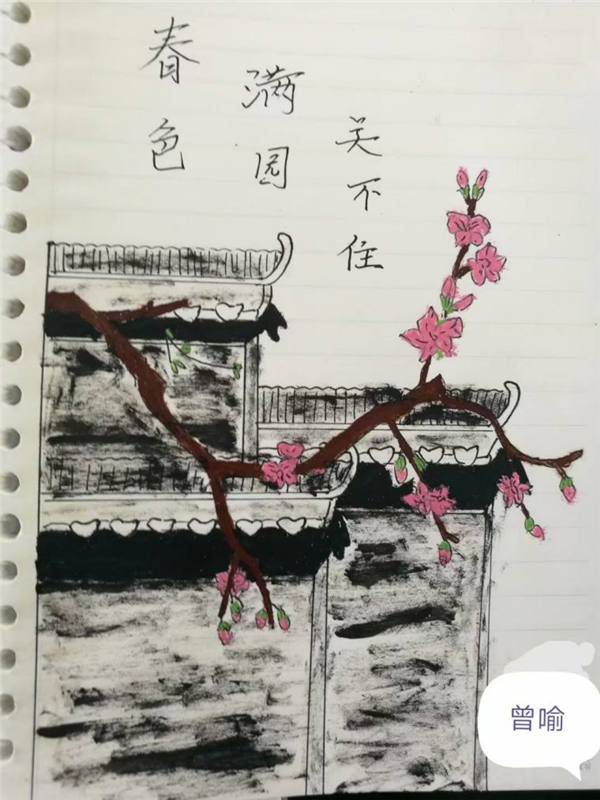 春色
满园
关不住
曾喻